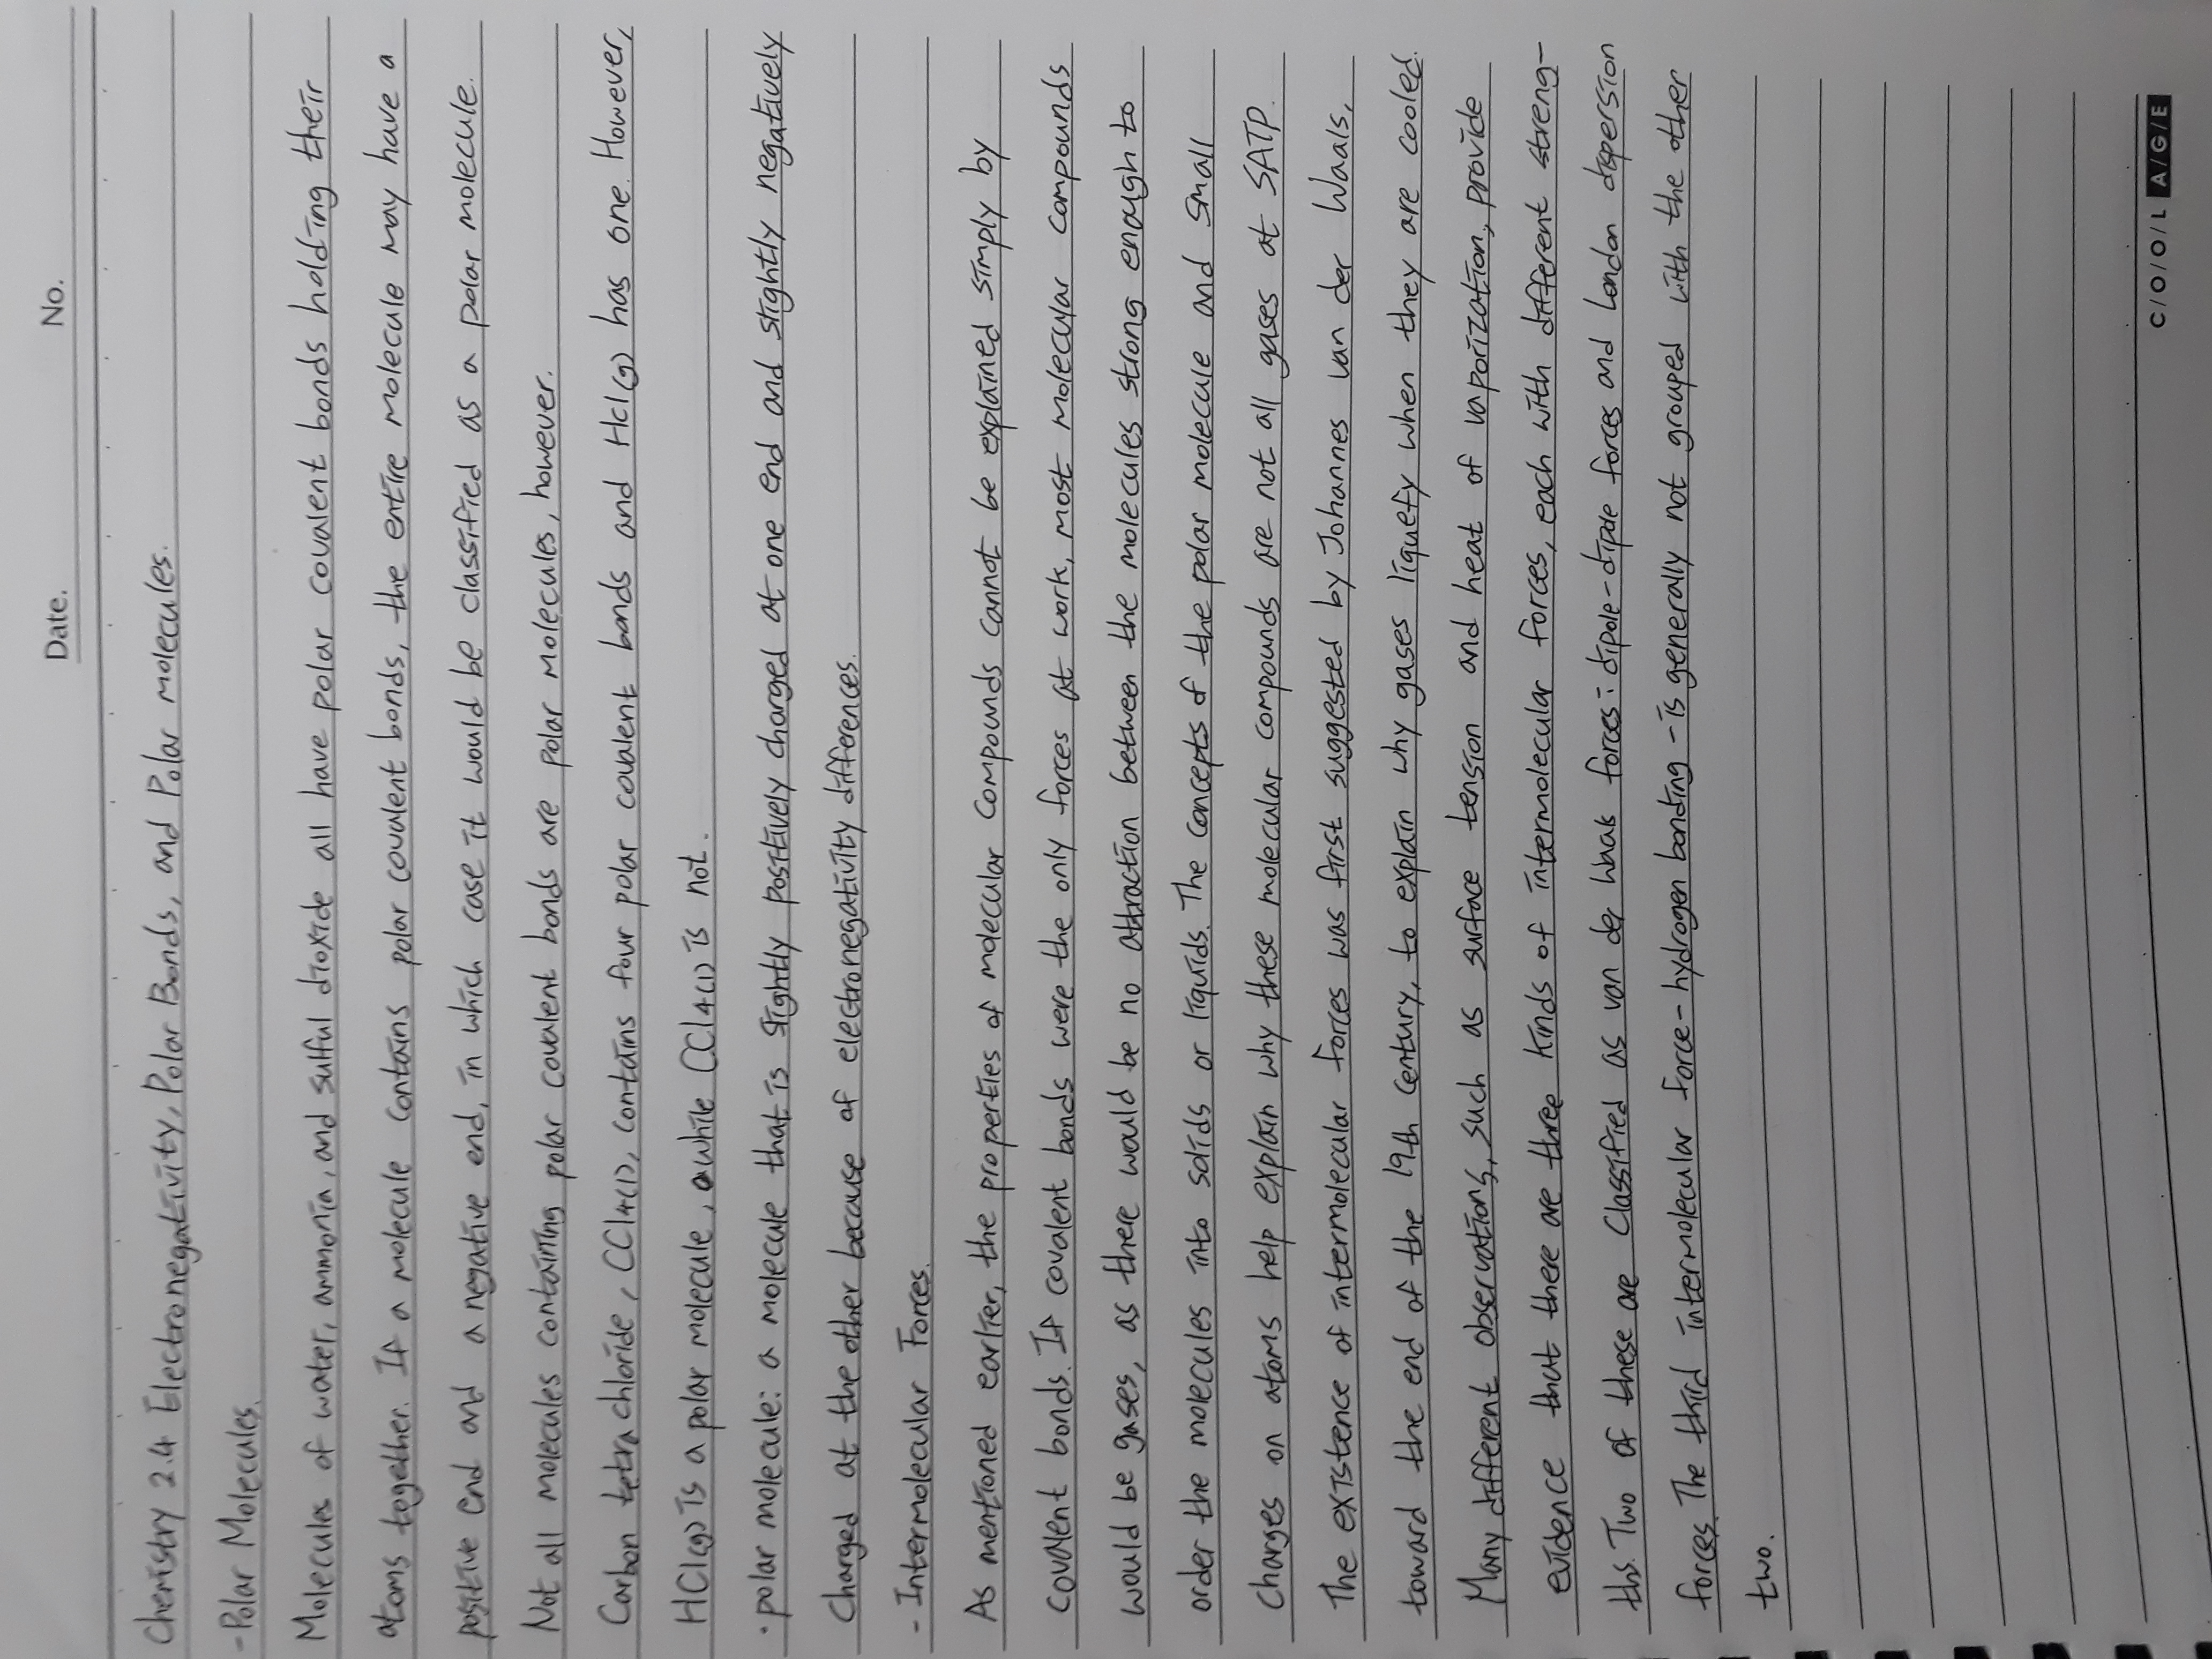 Date. No.
Chemistry 2.4 Electronegativity, Polar Bonds, and Polar molecules.
-Polar Molecules.
Molecules of water, ammonia, and sulful dioxide all have polar covalent bonds holding their
atoms together. If a molecule contains polar covalent bonds, the entire molecule may have a
positive end and a negative end, in which case it would be classified as a polar molecule.
Not all molecules containing polar covalent bonds are polar molecules, however.
Carbon tetra chloride, CCl4(l), contains four polar covalent bonds and HCl(g) has one. However,
HCl(g) is a polar molecule, while CCl4(l) is not.
· polar molecule: a molecule that is slightly positively charged at one end and slightly negatively
charged at the other because of electronegativity differences.
- Intermolecular Forces.
As mentioned earlier, the properties of molecular compounds cannot be explained simply by
covalent bonds. If covalent bonds were the only forces at work, most molecular compounds
would be gases, as there would be no attraction between the molecules strong enough to
order the molecules into solids or liquids. The concepts of the polar molecule and small
charges on atoms help explain why these molecular compounds are not all gases at SATP.
The existence of intermolecular forces was first suggested by Johannes van der Waals,
toward the end of the 19th century, to explain why gases liquefy when they are cooled.
Many different observations, such as surface tension and heat of vaporization, provide
evidence that there are three kinds of intermolecular forces, each with different streng-
ths. Two of these are classified as van der Waals forces: dipole-dipole forces and London dispersion
forces. The third intermolecular force-hydrogen bonding-is generally not grouped with the other
two.
C/O/O/L A/G/E